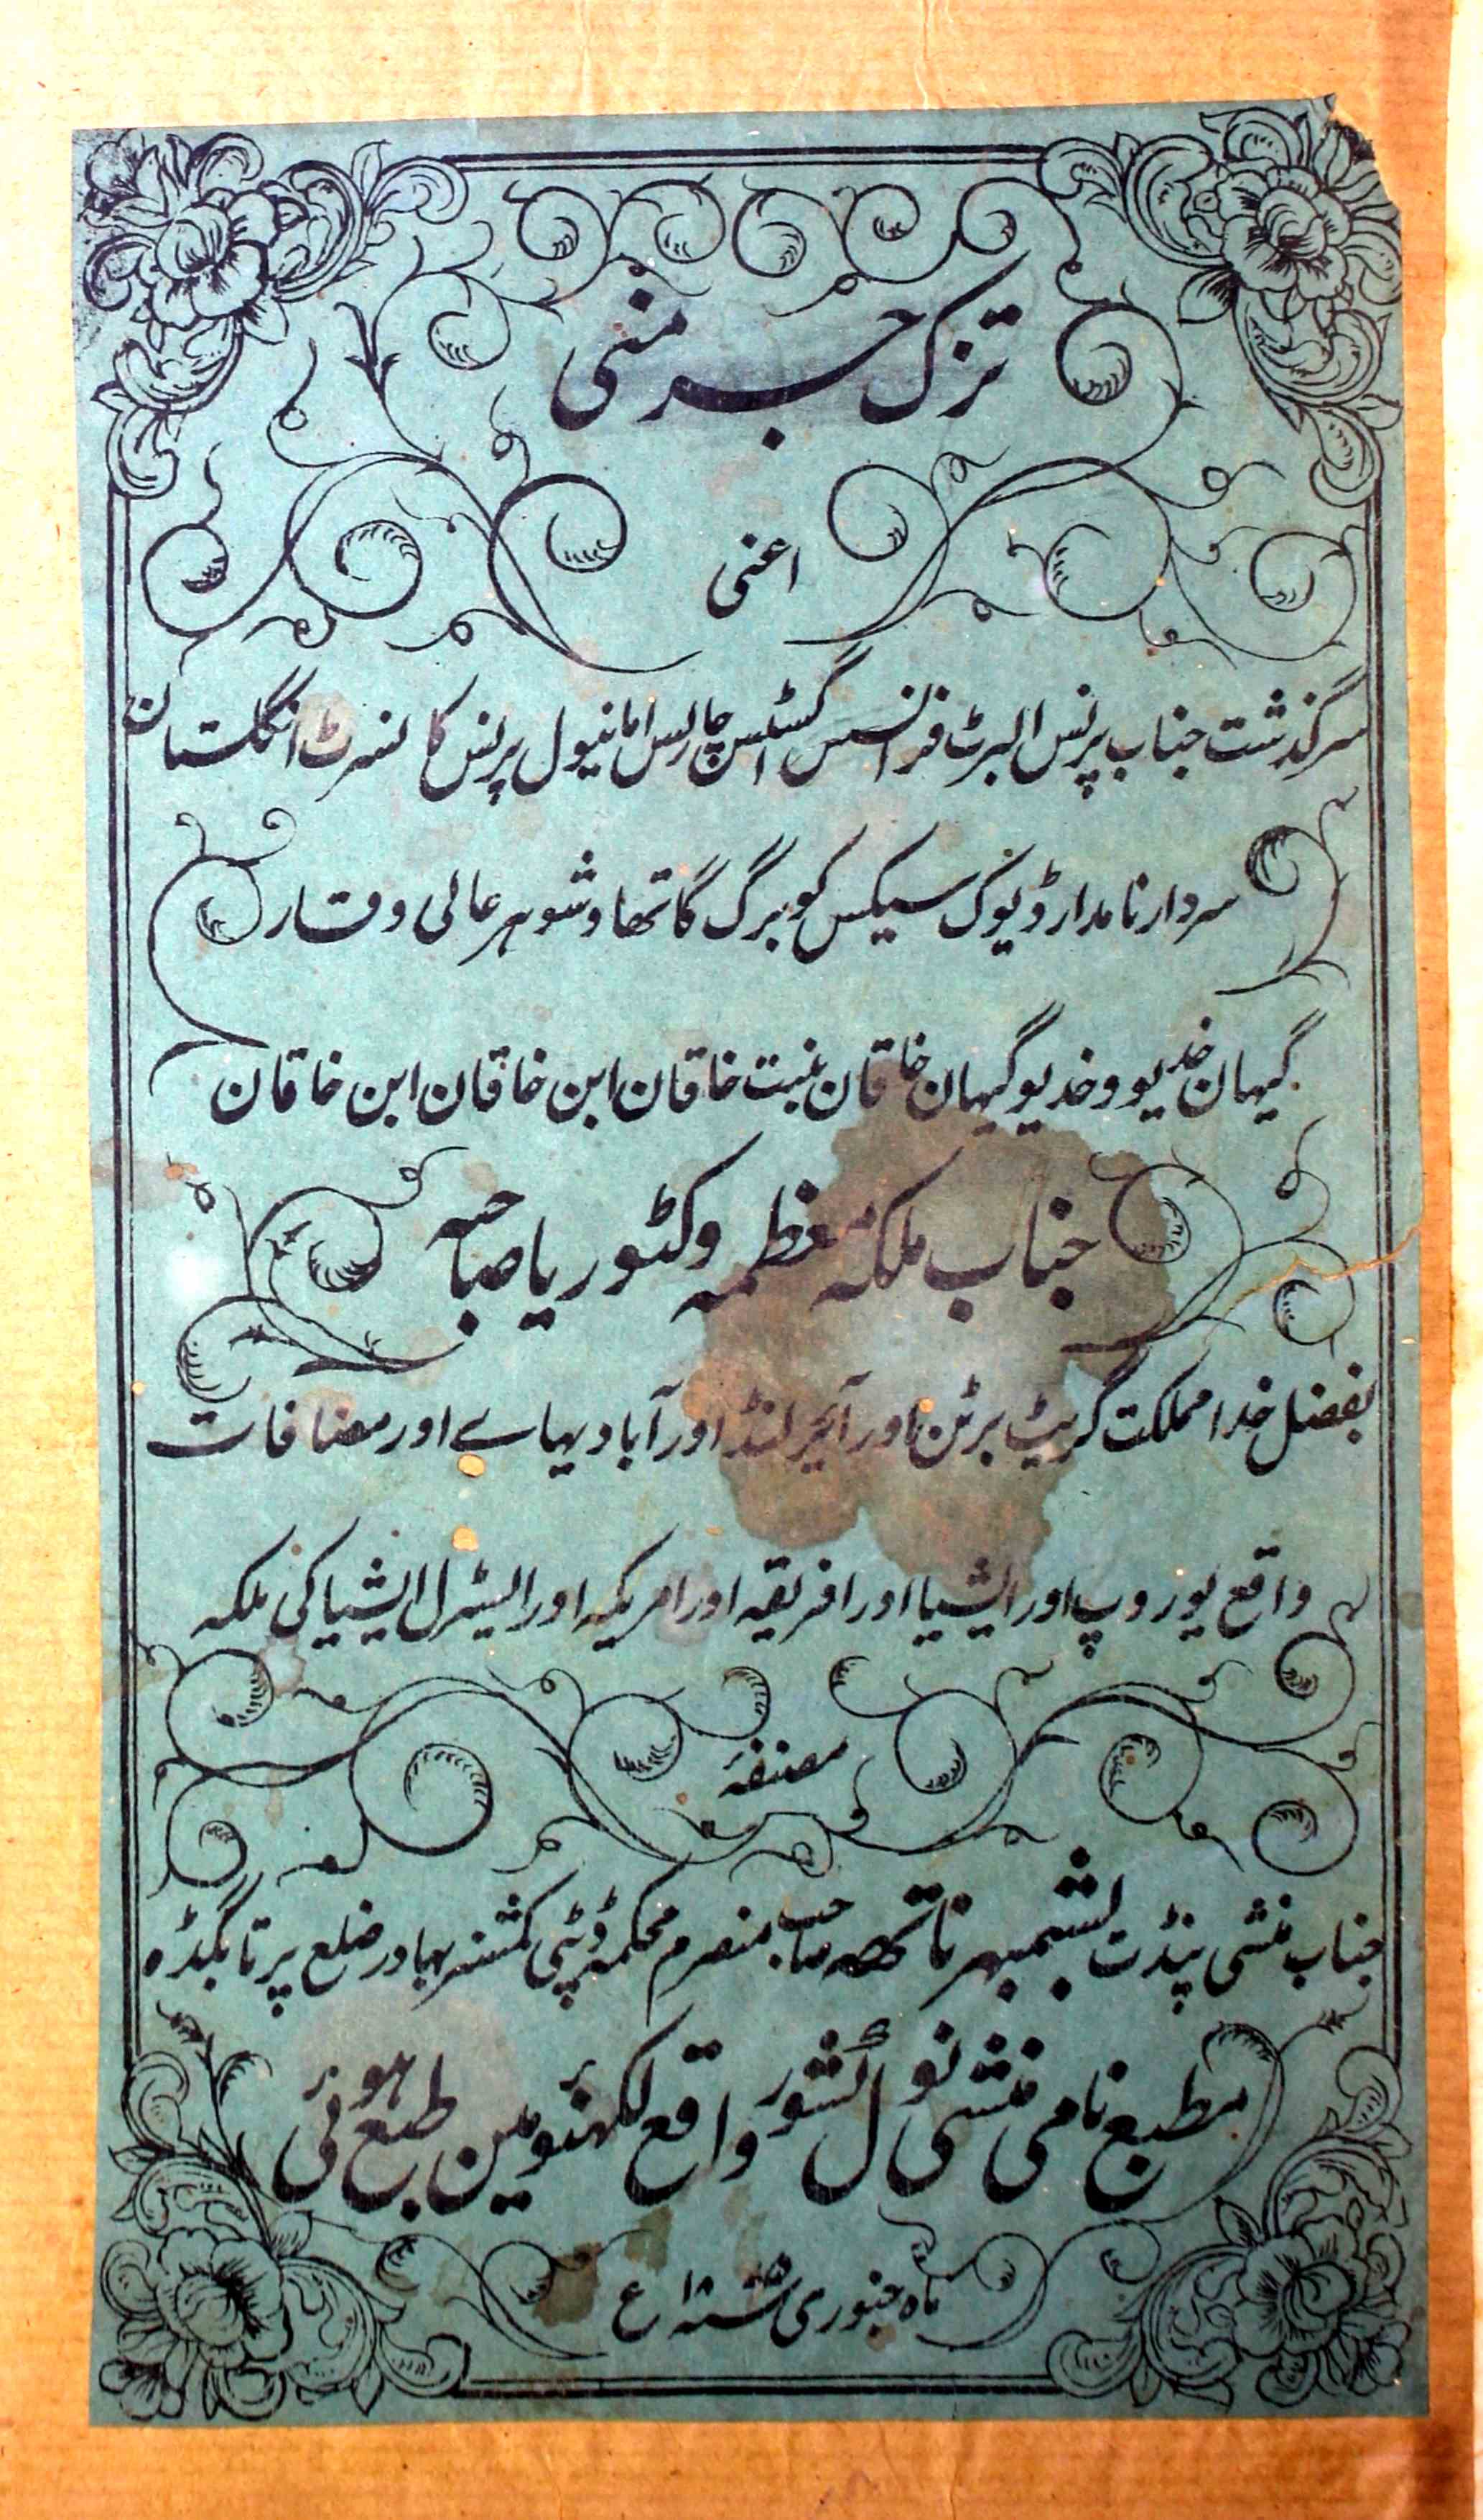 تزک جرمنی
اعنی
سرگذشت جناب پرنس البرٹ فرانسس اگسٹس چارلس امانیول پرنس کانسرٹ انگلستان
سردار نامدار ڈیوک سیکس کوبرگ گاتھا و شوہر عالی وقار
گیہان خدیو و خدیو گیہان خاقان بنت خاقان ابن خاقان ابن خاقان
جناب ملکہ معظمہ وکٹوریا صاحبہ
بفضل خدا مملکت گریٹ برٹن اور آئیرلنڈ اور آبادیہاے اور مضافات
واقع یوروپ اور ایشیا اور افریقہ اور امریکہ اور ایسٹرل ایشیا کی ملکہ
مصنفہٴ
جناب منشی پنڈت بشمبہر ناتھہ صاحب منصرم محکمہ ڈپٹی کمشنر بہادر ضلع پرتابگڈہ
مطبع نامی منشی نولکشور واقع لکھنؤ مین طبع ہوئی
ماہ جنوری ع